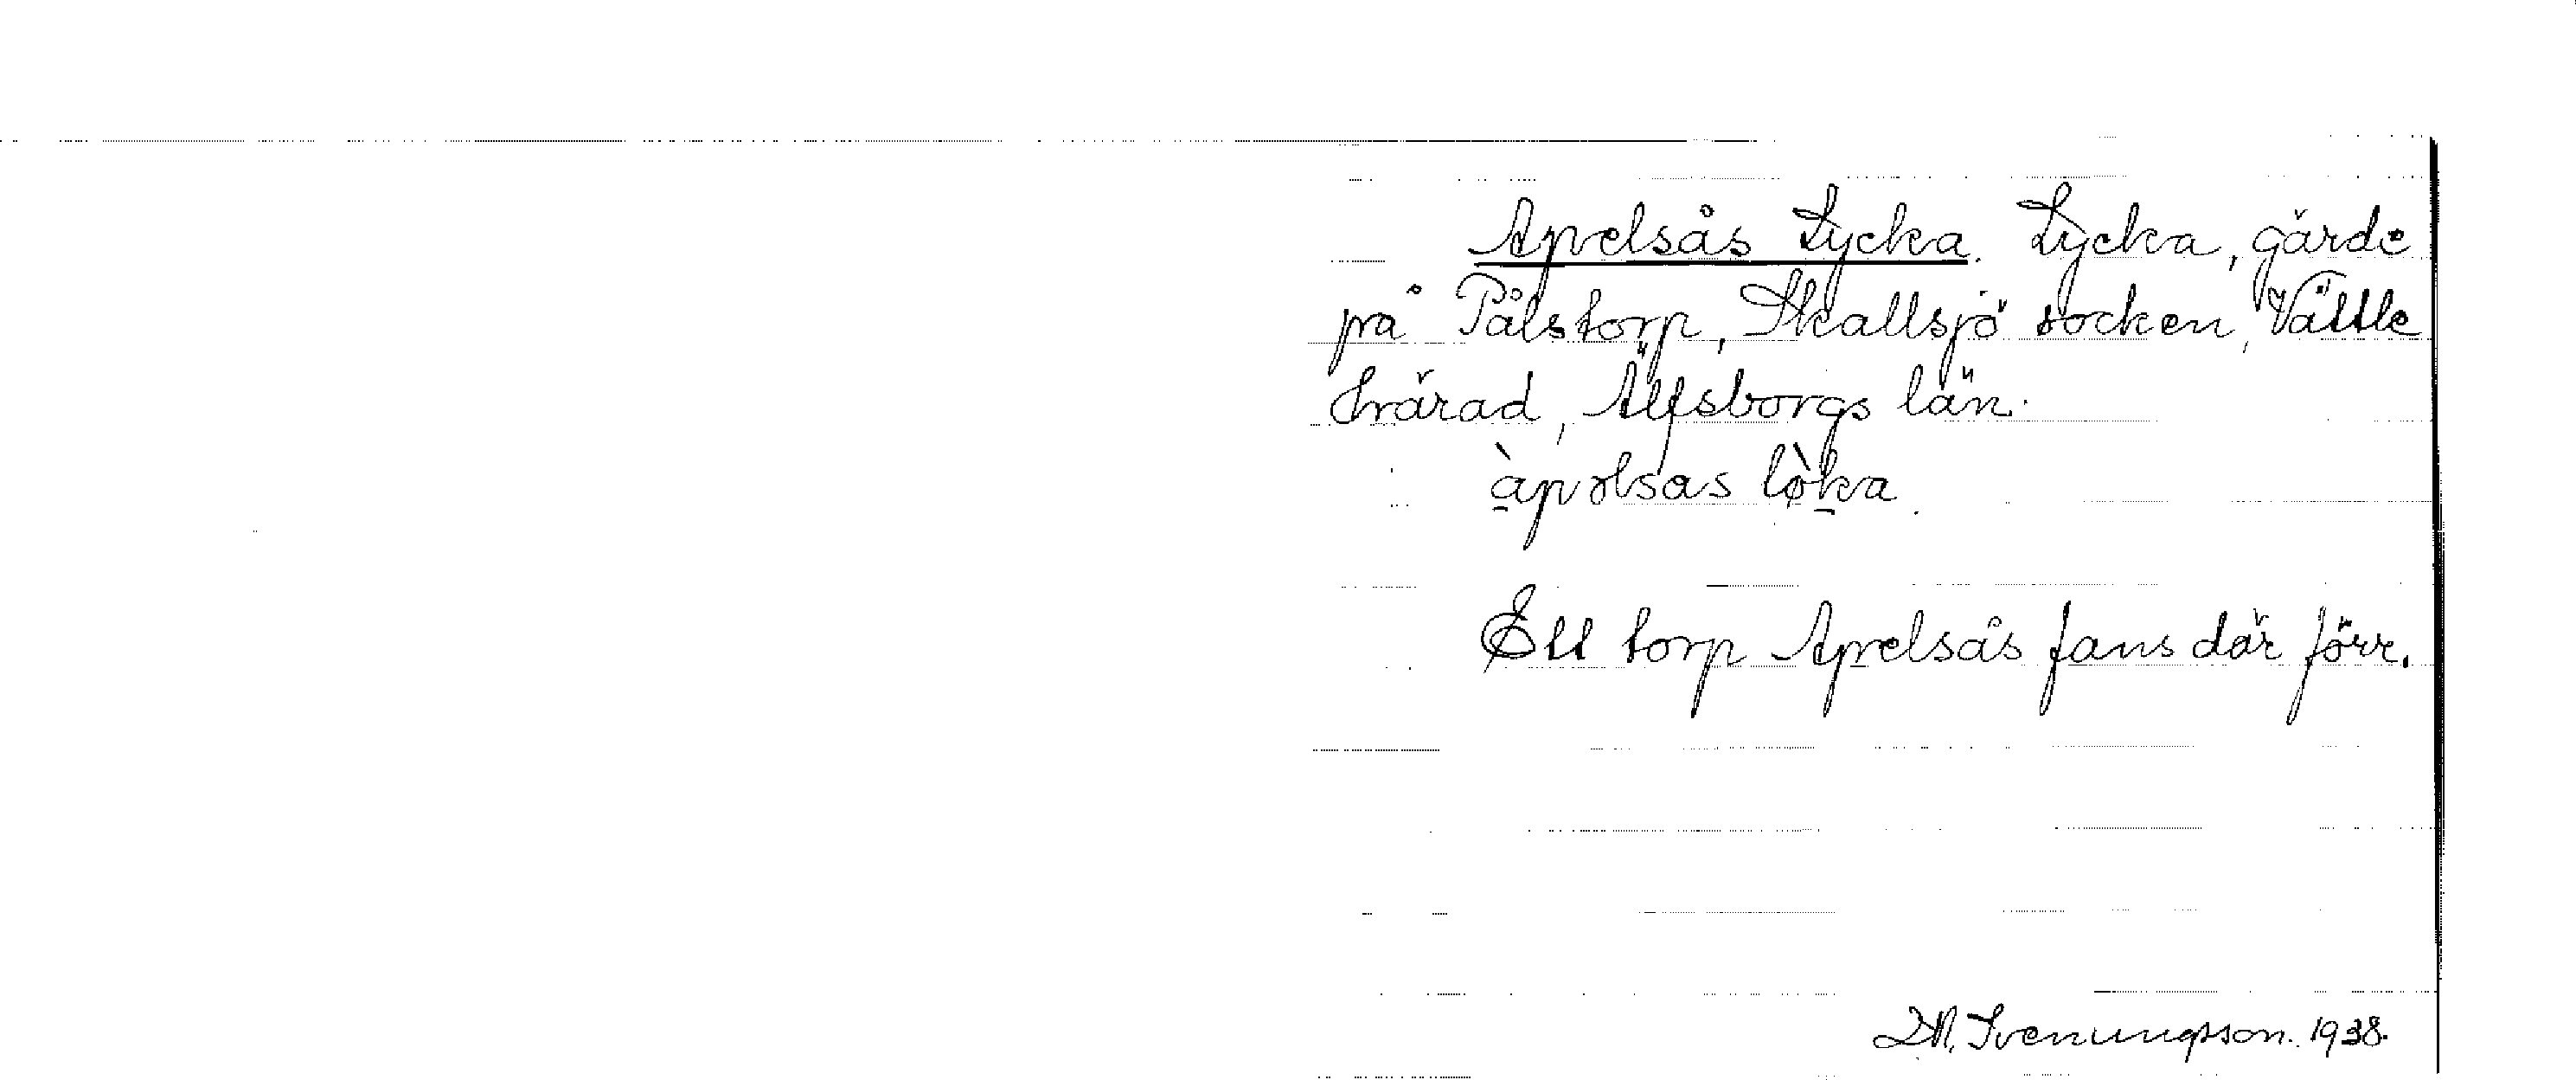 Apelsås Lycka. Lycka, gärde
på Pålstorp, Skallsjö socken, Vättle
härad, Älfsborgs län.
àpəlsas lò̱ka.
Ett torp Apelsås fans där förr.
Svenungsson. 1938.